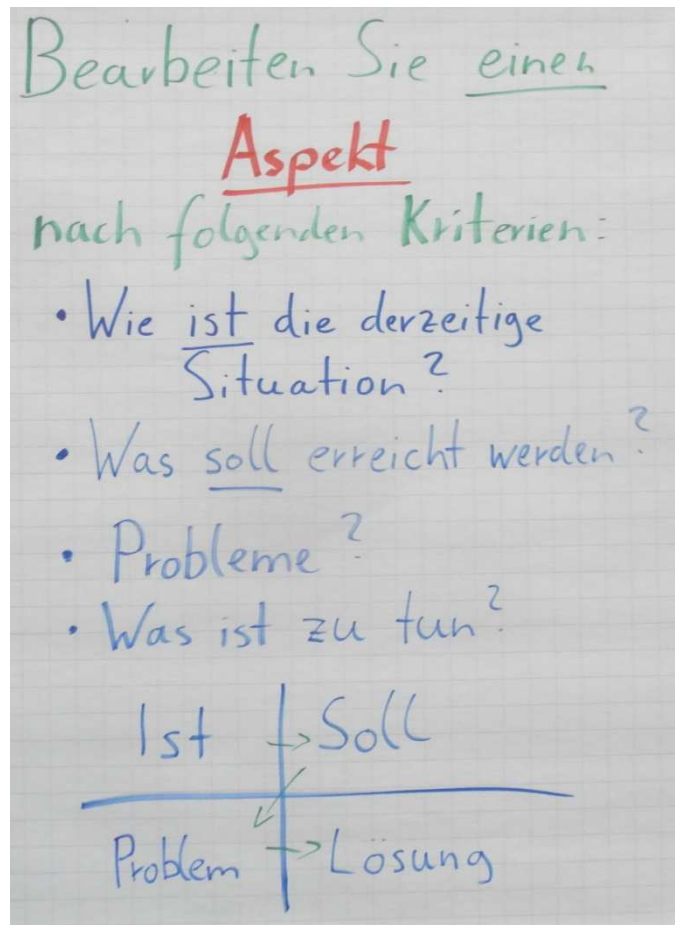 Bearbeiten Sie einen
Aspekt
nach folgenden Kriterien:
• Wie ist die derzeitige
Situation?
• Was soll erreicht werden?
• Probleme?
• Was ist zu tun?
Ist → Soll
Problem → Lösung